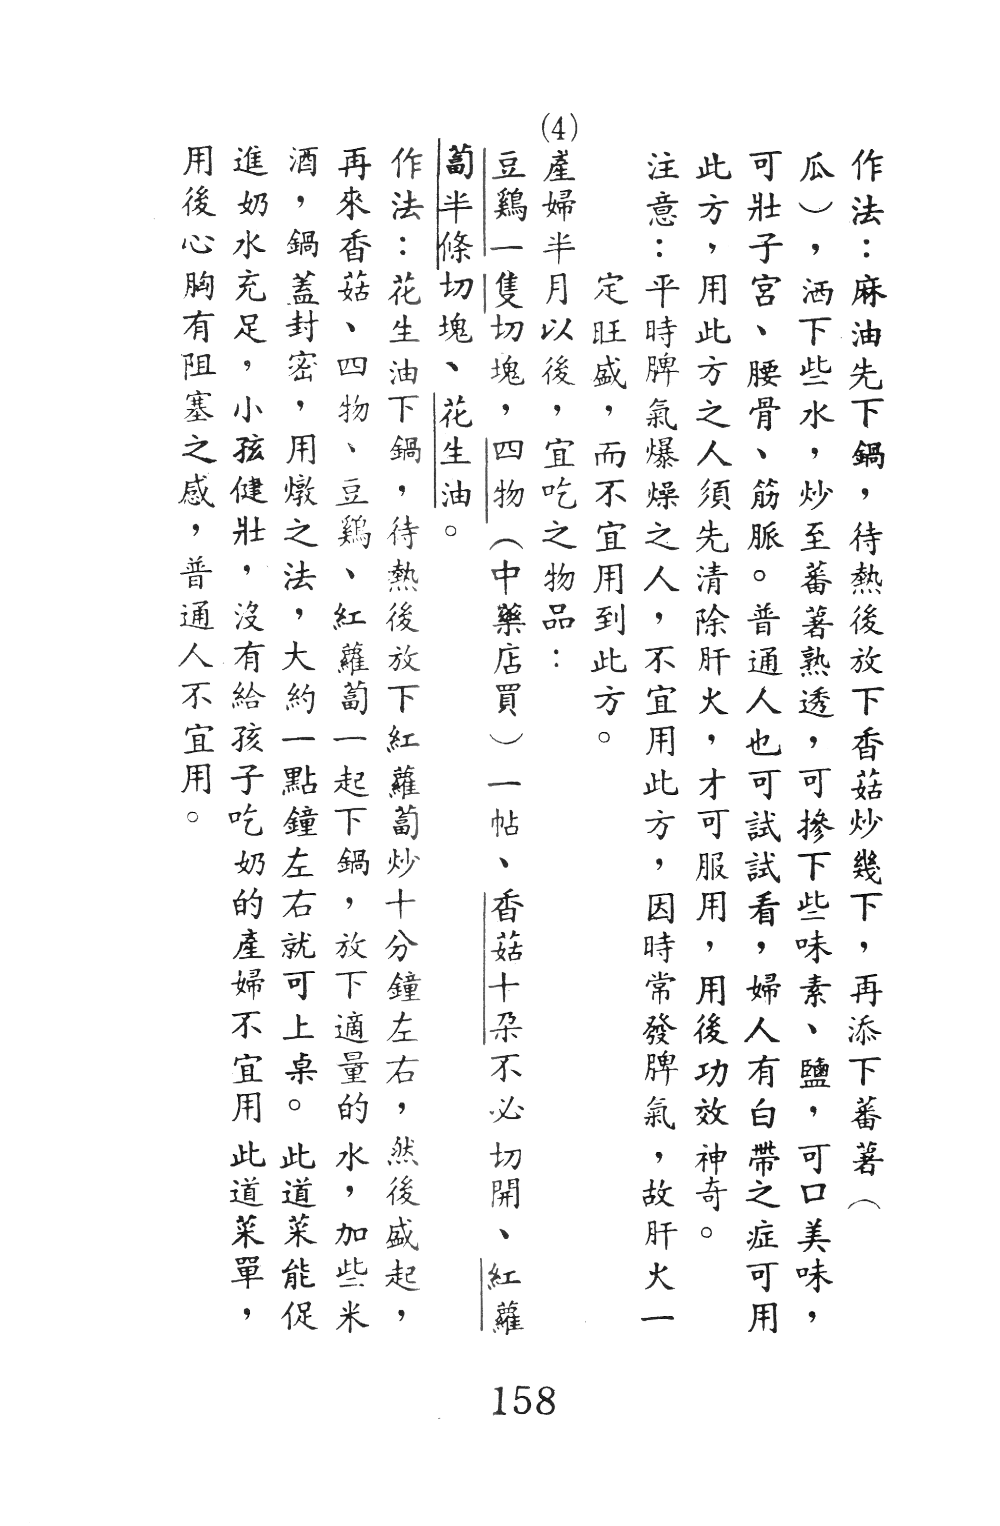 作法：麻油先下鍋，待熱後放下香菇炒幾下，再添下蕃薯（
瓜），洒下些水，炒至蕃薯熟透，可摻下些味素、鹽，可口美味，
可壯子宮、腰骨、筋脈。普通人也可試試看，婦人有白帶之症可用
此方，用此方之人須先清除肝火，才可服用，用後功效神奇。
注意：平時脾氣爆燥之人，不宜用此方，因時常發脾氣，故肝火一
定旺盛，而不宜用到此方。
(4)產婦半月以後，宜吃之物品：
豆鷄一隻切塊，四物（中藥店買）一帖、香菇十朶不必切開、紅蘿
蔔半條切塊、花生油。
作法：花生油下鍋，待熱後放下紅蘿蔔炒十分鐘左右，然後盛起，
再來香菇、四物、豆鷄、紅蘿蔔一起下鍋，放下適量的水，加些米
酒，鍋蓋封密，用燉之法，大約一點鐘左右就可上桌。此道菜能促
進奶水充足，小孩健壯，沒有給孩子吃奶的產婦不宜用此道菜單，
用後心胸有阻塞之感，普通人不宜用。
158